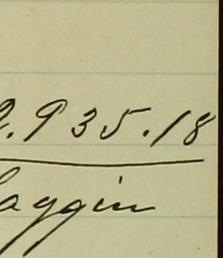 2.935.18
aggin